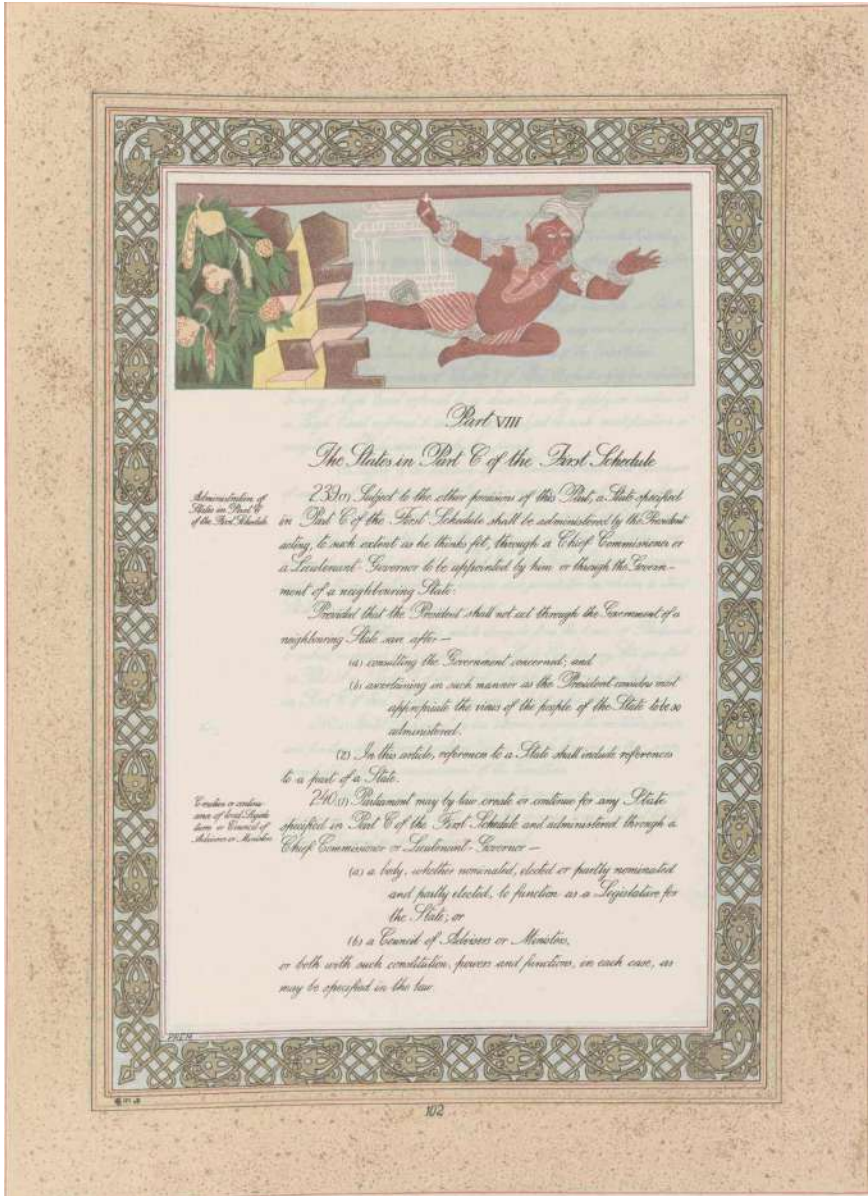 Part VIII
The States in Part C of the First Schedule
Administration of
States in Part C
of the First Schedule.
239.(1) Subject to the other provisions of this Part, a State specified
in Part C of the First Schedule shall be administered by the President
acting, to such extent as he thinks fit, through a Chief Commissioner or
a Lieutenant-Governor to be appointed by him or through the Govern-
ment of a neighbouring State:
Provided that the President shall not act through the Government of a
neighbouring State save after—
(a) consulting the Government concerned; and
(b) ascertaining in such manner as the President considers most
appropriate the views of the people of the State to be so
administered.
(2) In this article, reference to a State shall include references
to a part of a State.
Creation or continu-
ance of local Legisla-
tures or Council of
Advisers or Ministers.
240.(1) Parliament may by law create or continue for any State
specified in Part C of the First Schedule and administered through a
Chief Commissioner or Lieutenant-Governor—
(a) a body, whether nominated, elected or partly nominated
and partly elected, to function as a Legislature for
the State; or
(b) a Council of Advisers or Ministers,
or both with such constitution, powers and functions, in each case, as
may be specified in the law.
PREM
102